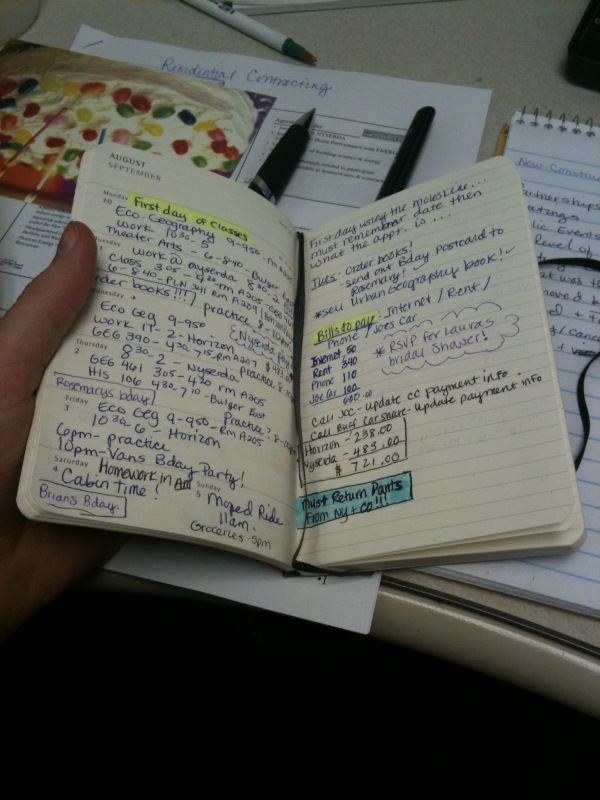 Residential Contracting
AUGUST
SEPTEMBER
Monday
30
First day of classes
Eco. Geography 9-950 - Rm A205
Work 1030-5
Theater Arts - 6-840 - Bulger
Work @ nyserda 830-2
Class 305-420 rm A205
6-840-PLN 341 Rm A209
order books!!!
practice 8-10
Eco Geg 9-950
Work IT - 2-Horizon
GEG 390-
Thursday
2
830-2 - Nyserda
GEG 461 305-420 rm A205
HIS 106 430-710 - Bulger East
Rosemarys bday
Friday
3
Eco Geg 9-950-Rm A205
1030-6-Horizon
6pm-practice
10pm-Vans Bday Party!
Saturday
4
Homework in Am
Cabin Time!
Brians Bday.
Sunday
5
Moped Ride
11am.
Groceries-5pm
First day using the moleskine...
must remember date then
what the appt. is...
Tues - Order books!
- Send out Bday Postcard to
Rosemary!
*sell Urban Geography book!
Bills to pay: Internet / Rent /
Phone / Joes Car
Internet 50
Rent 340
Phone 110
Joe Car 100
600.00
*RSVP for Lauras
bridal Shower!
Call Joe - update CC payment info.
Call Buff Carshare - update payment info
Horizon - 238.00
Nyserda - 483.00
$ 721.00
Must Return Pants
From NY + Co!!!
New Constru